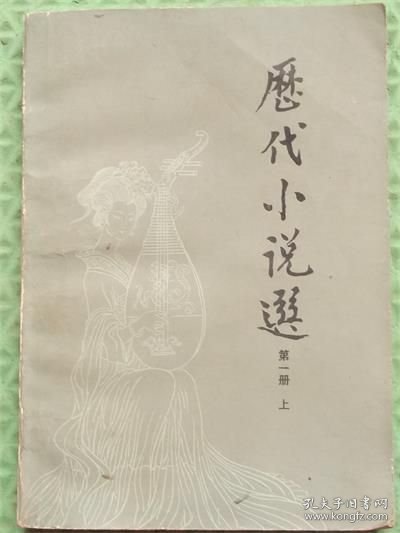 歷代小说選
第一册 上
孔夫子旧书网
www.kongfz.com